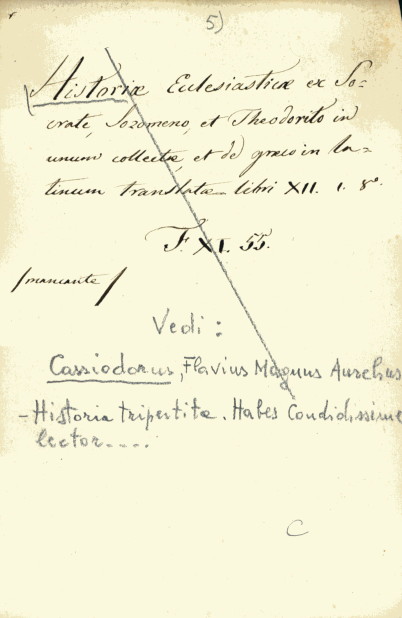 5)
Historiæ Eclesiasticæ ex So=
crate, Sozomeno, et Theodorito in
unum collectæ, et de græco in la=
tinum translatæ libri XII. 1. 8º.
F. XI. 55.
/mancante/
Vedi:
Cassiodorus, Flavius Magnus Aurelius
- Historia tripertita. Habes Condidissime
lector.....
C